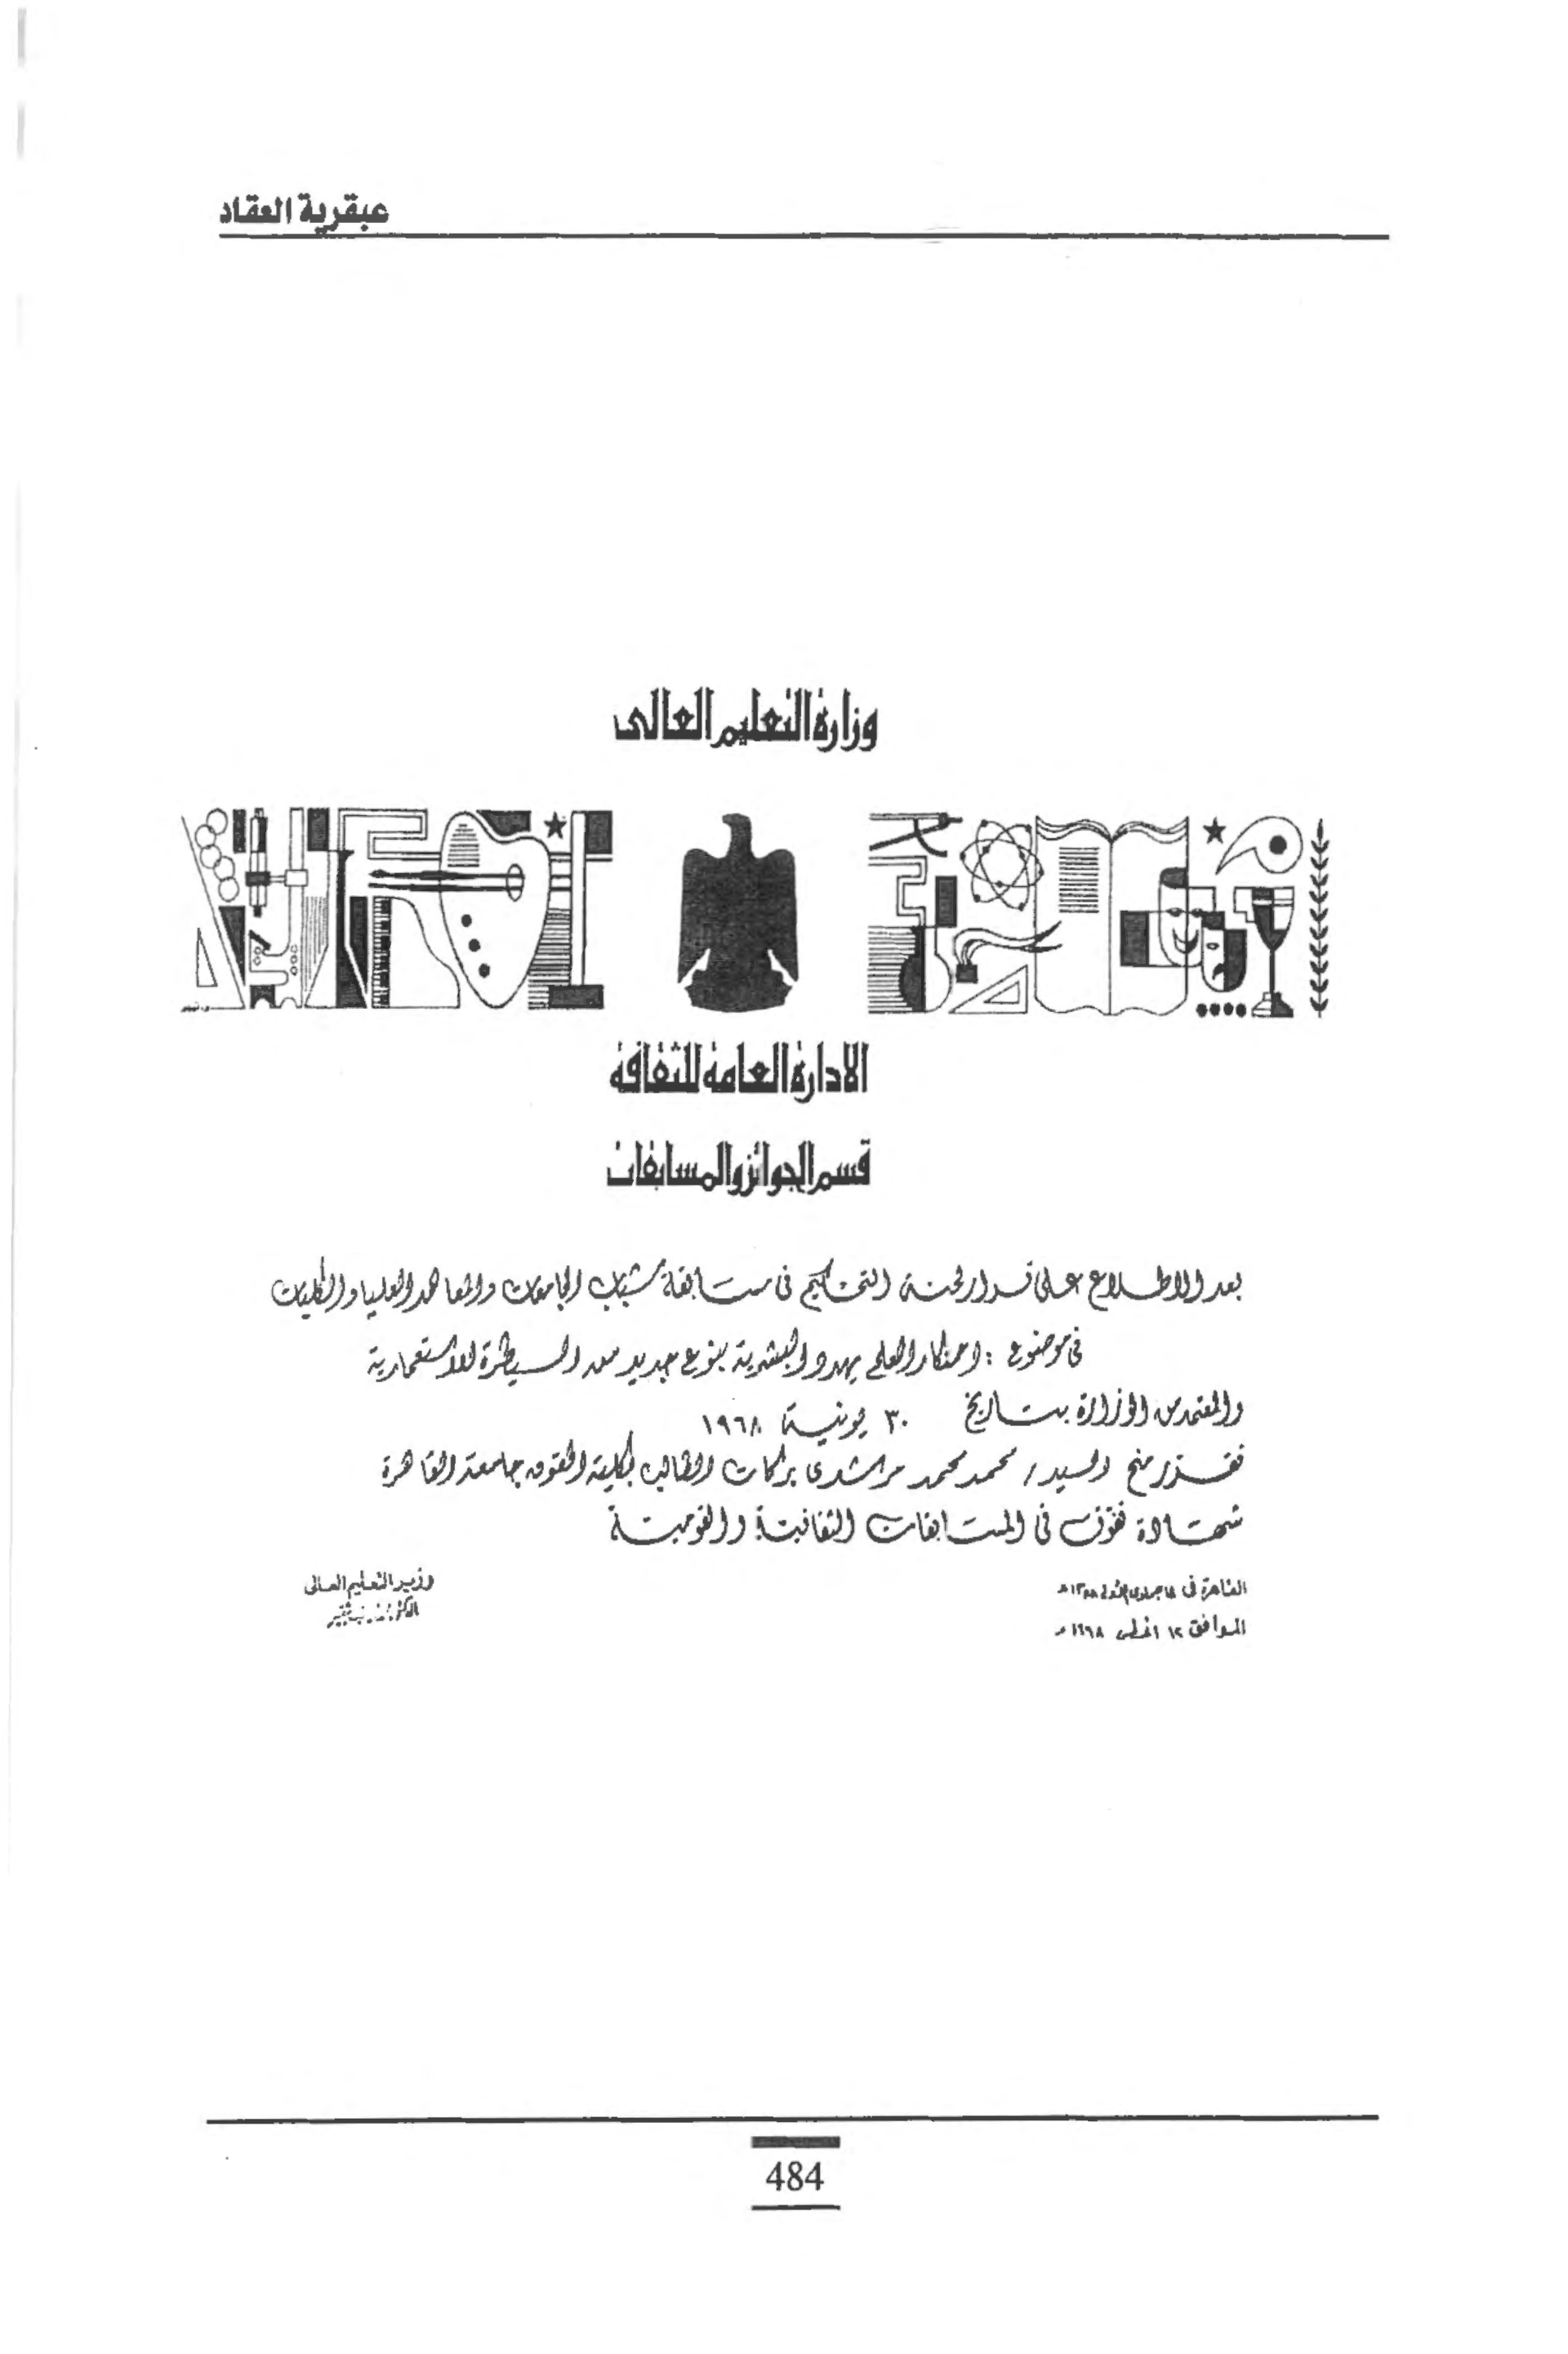 عبقرية العقاد
وزارة التعليم العالى
الادارة العامة للثقافة
قسم الجوائز والمسابقات
بعد الاطلاع على قرار لجنة التحكيم فى مسابقة شباب الجامعات والمعاهد العليا والكليات
فى موضوع : احتكار العلم يهدد البشرية بنوع جديد من السيطرة الاستعمارية
والمعتمد من الوزارة بتاريخ ٣٠ يونية ١٩٦٨
فقد تقرر منح السيد / محمد محمد مرشدى بركات الطالب بكلية الحقوق جامعة القاهرة
شهادة تفوق فى المسابقات الثقافية والقومية
القاهرة فى جمادى الأولى ١٣٨٨ هـ
الموافق ١٢ اغسطس ١٩٦٨ م
وزير التعليم العالى
484